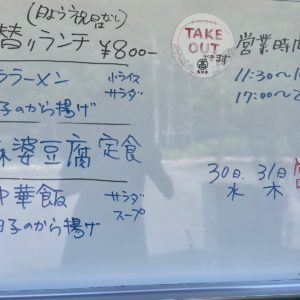 (日よう祝日はなし)
替りランチ ¥800-
ラーメン 小ライス
サラダ
子のから揚げ
麻婆豆腐定食
中華飯 サラダ
スープ
子のから揚げ
TAKE
OUT
できます
営業時間
11:30~1
17:00~2
30日. 31日
水 木